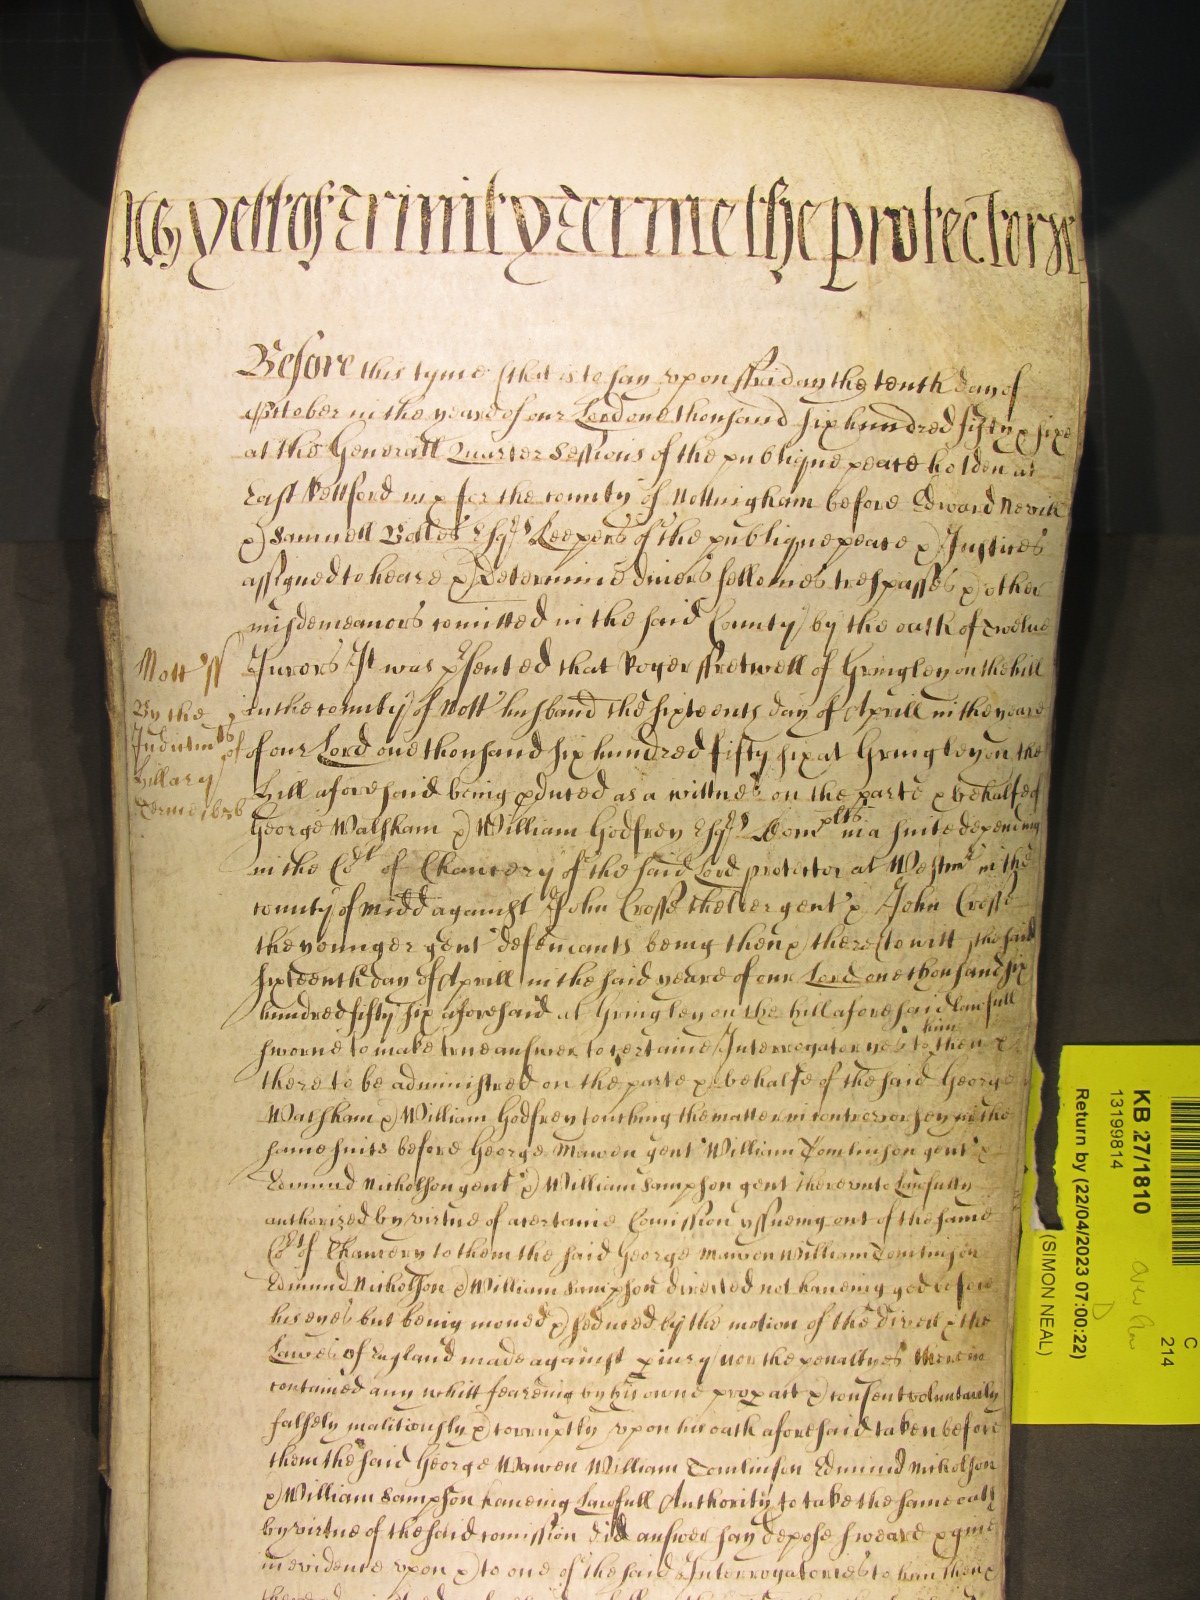 yett of Trinity Terme the protector
Before this tyme (that is to say upon ffriday the tenth day of
October in the yeare of our Lord one thousand six hundred fifty & sixe
at the Generall Quarter Sessions of the publique peace holden at
East Rettford in & for the county of Nottingham before Edward Nevill
& Samuell Esqrs Keepers of the publique peace & Justices
assigned to heare & determine divers fellonies trespasses & other
misdemeanors comitted in the said County by the oath of Twelve
Jurors It was psented that Roger ffretwell of Gringley on the hill
in the county of Nott husband the sixteenth day of Aprill in the yeare
of our Lord one thousand six hundred fifty six at Gringley on the
hill aforesaid being pduced as a wittnes on the parte & behalfe of
George Walsham & William Godfrey Esqrs Complts in a suite depending
in the Cort of Chancery of the said Lord protector at Westmr in the
county of Midd against John Crosse the elder gent & John Crosse
the younger gent defendants being then & there (to witt) the said
sixteenth day of Aprill in the said yeare of our Lord one thousand six
hundred fifty six aforesaid at Gringley on the hill aforesaid lawfull
sworne to make true answer to certaine Interrogatoryes to him then &
there to be administred on the parte & behalfe of the said George
Walsham & William Godfrey touching the matter in controversey in the
same suite before George Mawen gent William Tomlinson gent &
Edmund Nicholson gent & William Sampson gent thereunto lawfully
authorized by virtue of a certaine Comission yssueing out of the same
Cort of Chancery to them the said George Mawen William Tomlinson
Edmund Nicholson & William Sampson directed not haveing god before
his eyes but being moved & seduced by the motion of the divell & the
Lawes of England made against piury nor the penaltyes therein
contained any whitt feareing by his owne propr act & consent voluntarily
falsely malitiously & corruptly upon his oath aforesaid taken before
them the said George Mawen William Tomlinson Edmund Nicholson
& William Sampson haveing Lawfull Authority to take the same oath
by virtue of the said comission did answer say depose sweare & give
in evidence upon & to one of the said Interrogatories to him then &
Nott ss
By the
Indictmts of
Hillary
Terme 1656
C
214
KB 27/1810
13199814
Return by (22/04/2023 07:00:22)
D
(SIMON NEAL)